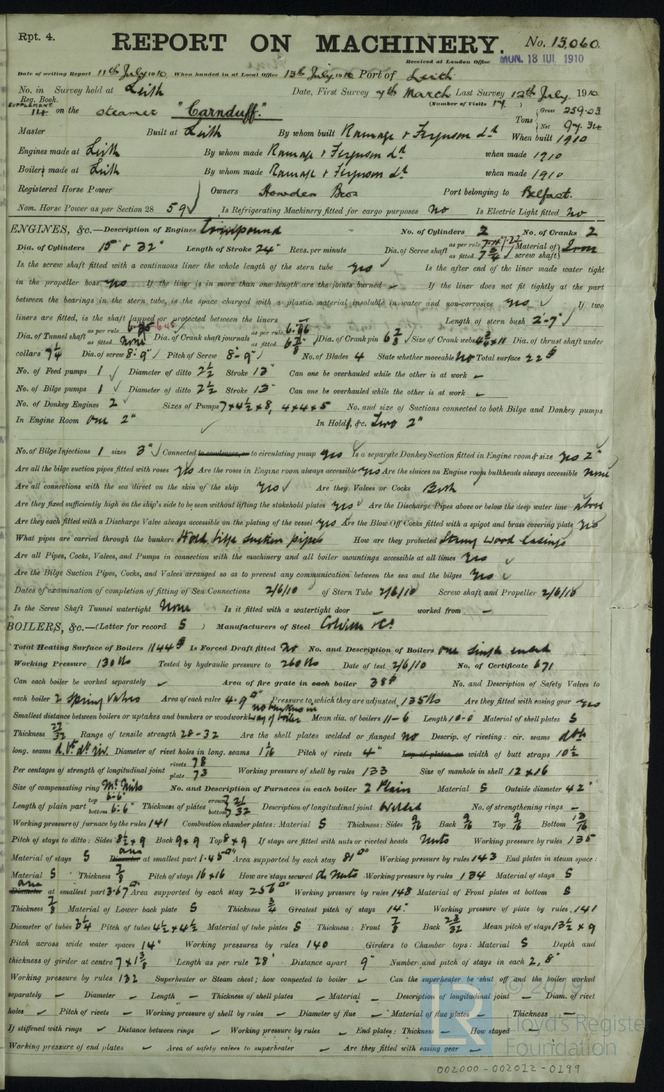 Rpt. 4.
REPORT ON MACHINERY.
No. 13,060.
Received at London Office MON. 18 JUL 1910
Date of writing Report 11th July 1910. When handed in at Local Office 13th July 1910 Port of Leith
No. in Survey held at Leith Date, First Survey 7th March Last Survey 12th July 1910
Reg. Book. (Number of Visits 14)
SUPPLEMENT 14 on the steamer "Carnduff." Tons Gross 259.03 Net 94.34
Master Built at Leith By whom built Ramage & Ferguson Ld When built 1910
Engines made at Leith By whom made Ramage & Ferguson Ld when made 1910
Boilers made at Leith By whom made Ramage & Ferguson Ld when made 1910
Registered Horse Power Owners Howden Bros Port belonging to Belfast.
Nom. Horse Power as per Section 28 59 Is Refrigerating Machinery fitted for cargo purposes No Is Electric Light fitted No
ENGINES, &c.—Description of Engines Compound No. of Cylinders 2 No. of Cranks 2
Dia. of Cylinders 15" & 32" Length of Stroke 24" Revs. per minute Dia. of Screw shaft as per rule as fitted 7 3/4 Material of screw shaft Iron
Is the screw shaft fitted with a continuous liner the whole length of the stern tube yes Is the after end of the liner made water tight
in the propeller boss yes If the liner is in more than one length are the joints burned — If the liner does not fit tightly at the part
between the bearings in the stern tube, is the space charged with a plastic material insoluble in water and non-corrosive yes If two
liners are fitted, is the shaft lapped or protected between the liners Length of stern bush 2-7"
Dia. of Tunnel shaft as per rule as fitted None Dia. of Crank shaft journals as per rule 6.86 as fitted Dia. of Crank pin Size of Crank webs Dia. of thrust shaft under
collars 7 1/4 Dia. of screw 8-9" Pitch of Screw 8-9" No. of Blades 4 State whether moveable No Total surface 22
No. of Feed pumps 1 Diameter of ditto 2 1/2 Stroke 13" Can one be overhauled while the other is at work —
No. of Bilge pumps 1 Diameter of ditto 2 1/2 Stroke 13" Can one be overhauled while the other is at work —
No. of Donkey Engines 2 Sizes of Pumps 7x4 1/2x8, 4x4x5 No. and size of Suctions connected to both Bilge and Donkey pumps
In Engine Room One 2" In Holds, &c. Two 2"
No. of Bilge Injections 1 sizes 3" Connected to condenser, or to circulating pump yes Is a separate Donkey Suction fitted in Engine room & size yes 2"
Are all the bilge suction pipes fitted with roses yes Are the roses in Engine room always accessible yes Are the sluices on Engine room bulkheads always accessible None
Are all connections with the sea direct on the skin of the ship yes Are they Valves or Cocks Both
Are they fixed sufficiently high on the ship's side to be seen without lifting the stokehold plates yes Are the Discharge Pipes above or below the deep water line above
Are they each fitted with a Discharge Valve always accessible on the plating of the vessel yes Are the Blow Off Cocks fitted with a spigot and brass covering plate yes
What pipes are carried through the bunkers Hold bilge suction pipes How are they protected Strong wood casings
Are all Pipes, Cocks, Valves, and Pumps in connection with the machinery and all boiler mountings accessible at all times yes
Are the Bilge Suction Pipes, Cocks, and Valves arranged so as to prevent any communication between the sea and the bilges yes
Dates of examination of completion of fitting of Sea Connections 2/6/10 of Stern Tube 2/6/10 Screw shaft and Propeller 2/6/10
Is the Screw Shaft Tunnel watertight None Is it fitted with a watertight door — worked from —
BOILERS, &c.—(Letter for record S) Manufacturers of Steel Colville & Co.
Total Heating Surface of Boilers 1144 Is Forced Draft fitted No No. and Description of Boilers One single ended
Working Pressure 130 lbs Tested by hydraulic pressure to 260 lbs Date of test 2/6/10 No. of Certificate 671
Can each boiler be worked separately — Area of fire grate in each boiler 38 No. and Description of Safety Valves to
each boiler 2 Spring Valves Area of each valve 4.9 Pressure to which they are adjusted 135 lbs Are they fitted with easing gear yes
Smallest distance between boilers or uptakes and bunkers or woodwork no bunkers in way of boiler Mean dia. of boilers 11-6 Length 10-0 Material of shell plates S
Thickness 23/32 Range of tensile strength 28-32 Are the shell plates welded or flanged no Descrip. of riveting: cir. seams
long. seams Diameter of rivet holes in long. seams 1 1/16 Pitch of rivets 4" Lap of plates or width of butt straps 10 1/2
Per centages of strength of longitudinal joint rivets 78 plate 73 Working pressure of shell by rules 133 Size of manhole in shell 12 x 16
Size of compensating ring McNeils No. and Description of Furnaces in each boiler 2 Plain Material S Outside diameter 42"
Length of plain part top 6-6" bottom 6-6" Thickness of plates crown bottom 21/32 Description of longitudinal joint Welded No. of strengthening rings —
Working pressure of furnace by the rules 141 Combustion chamber plates: Material S Thickness: Sides 9/16 Back 9/16 Top 9/16 Bottom 13/16
Pitch of stays to ditto: Sides 8 1/2 x 9 Back 9x9 Top 8x9 If stays are fitted with nuts or riveted heads Nuts Working pressure by rules 135
Material of stays S Diameter area at smallest part 1.45 Area supported by each stay 81 Working pressure by rules 143 End plates in steam space:
Material S Thickness 7/8 Pitch of stays 16x16 How are stays secured d nuts Working pressure by rules 134 Material of stays S
Diameter area at smallest part 3.67 Area supported by each stay 256 Working pressure by rules 148 Material of Front plates at bottom S
Thickness 7/8 Material of Lower back plate S Thickness 3/4 Greatest pitch of stays 14" Working pressure of plate by rules 141
Diameter of tubes 3 1/4 Pitch of tubes 4 1/2 x 4 1/2 Material of tube plates S Thickness: Front 7/8 Back 23/32 Mean pitch of stays 13 1/2 x 9
Pitch across wide water spaces 14" Working pressures by rules 140 Girders to Chamber tops: Material S Depth and
thickness of girder at centre 7 x 1 3/8 Length as per rule 28" Distance apart 9" Number and pitch of stays in each 2, 8"
Working pressure by rules 132 Superheater or Steam chest; how connected to boiler — Can the superheater be shut off and the boiler worked
separately — Diameter — Length — Thickness of shell plates — Material — Description of longitudinal joint — Diam. of rivet
holes — Pitch of rivets — Working pressure of shell by rules — Diameter of flue — Material of flue plates — Thickness —
If stiffened with rings — Distance between rings — Working pressure by rules — End plates: Thickness — How stayed
Working pressure of end plates — Area of safety valves to superheater — Are they fitted with easing gear —
© 2019
Lloyd's Register
Foundation
002000-002022-0199